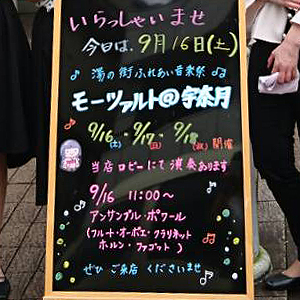 いらっしゃいませ
今日は、9月16日(土)
湯の街ふれあい音楽祭
モーツァルト@宇奈月
9/16(土)・9/17(日)・9/18(祝)開催
当店ロビーにて演奏あります
9/16 11:00〜
アンサンブル・ポワール
(フルート・オーボエ・クラリネット
ホルン・ファゴット)
ぜひ ご来店 くださいませ